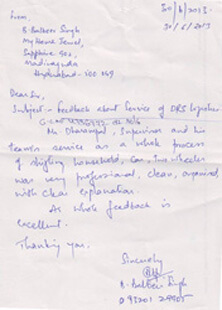 30/6/2013
30/6/2013
From,
B. Balbeer Singh
My Home Jewel,
Sapphire
Madinaguda
Hyderabad - 500 049
Dear Sir,
Subject - feedback about Service of DRS Logistics
Mr Dhanunpal, Supervisor and his
team's service as a whole process
of shifting household, Car, two wheeler
was very professional, clear, organised,
with clear explanation.
As whole feedback is
excellent.
Thanking you.
Sincerely
B. Balbeer Singh